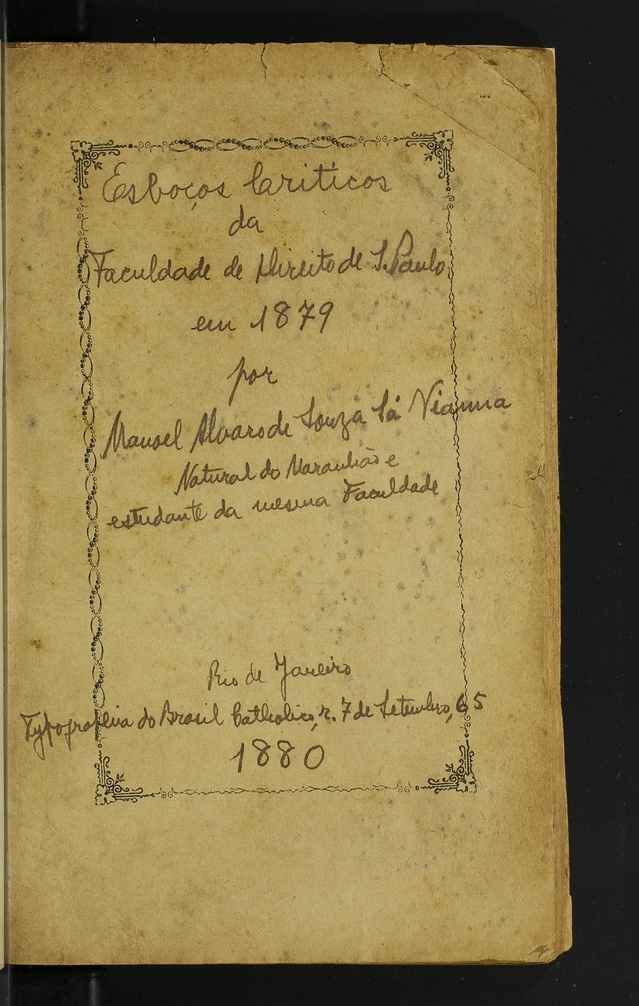 Esboços Criticos
da
Faculdade de Direito de S. Paulo
em 1879
por
Manoel Alvaro de Souza Sá Vianna
Natural do Maranhão e
estudante da mesma Faculdade
Rio de Janeiro
Typographia do Brasil Catholico, r. 7 de Setembro, 65
1880